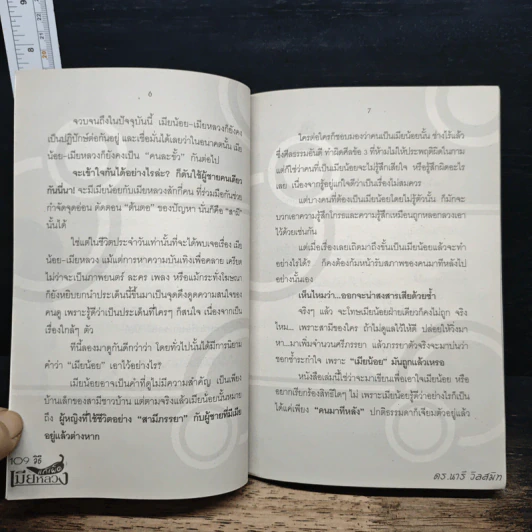 6
จวบจนถึงในปัจจุบันนี้ เมียน้อย-เมียหลวงก็ยังคง
เป็นปฏิปักษ์ต่อกันอยู่ และเชื่อมั่นได้เลยว่าในอนาคตนั้น เมีย
น้อย-เมียหลวงก็ยังคงเป็น "คนละขั้ว" กันต่อไป
จะเข้าใจกันได้อย่างไรล่ะ? ก็ดันใช้ผู้ชายคนเดียว
กันนี่นา! จะมีเมียน้อยกับเมียหลวงสักกี่คน ที่ร่วมมือกันช่วย
กำจัดจุดอ่อน ตัดตอน "ต้นตอ" ของปัญหา นั่นก็คือ "สามี"
นั้นได้
ใช่แต่ในชีวิตประจำวันเท่านั้นที่จะได้พบเจอเรื่อง เมีย
น้อย-เมียหลวง แม้แต่การหาความบันเทิงเพื่อคลาย เครียด
ไม่ว่าจะเป็นภาพยนตร์ ละคร เพลง หรือแม้กระทั่งโฆษณา
ก็ยังหยิบยกนำประเด็นนี้ขึ้นมาเป็นจุดดึงดูดความสนใจของ
คนดู เพราะรู้ดีว่าเป็นประเด็นที่ใครๆ ก็สนใจ เนื่องจากเป็น
เรื่องใกล้ๆ ตัว
ทีนี้ลองมาดูกันดีกว่าว่า โดยทั่วไปนั้นได้มีการนิยาม
คำว่า "เมียน้อย" เอาไว้อย่างไร?
เมียน้อยอาจเป็นคำที่ดูไม่มีความสำคัญ เป็นเพียง
บ้านเล็กของสามีชาวบ้าน แต่ตามจริงแล้วเมียน้อยนั้นหมาย
ถึง ผู้หญิงที่ใช้ชีวิตอย่าง "สามีภรรยา" กับผู้ชายที่มีเมีย
อยู่แล้วต่างหาก
109 วิธี
เมียหลวง
7
ใครต่อใครก็ชอบมองว่าคนเป็นเมียน้อยนั้น ช่างไร้แล้ว
ซึ่งศีลธรรมอันดี ทำผิดศีลข้อ 3 ที่ห้ามไม่ให้ประพฤติผิดในกาม
แต่ก็ใช่ว่าคนที่เป็นเมียน้อยจะไม่รู้สึกเสียใจ หรือรู้สึกผิดอะไร
เลย เนื่องจากรู้อยู่แก่ใจดีว่าเป็นเรื่องไม่สมควร
แต่บางคนที่ต้องเป็นเมียน้อยโดยไม่รู้ตัวนั้น ก็มักจะ
บวกเอาความรู้สึกโกรธและความรู้สึกเหมือนถูกหลอกลวงเอา
ไว้ด้วยเช่นกัน
แต่เมื่อเรื่องเลยเถิดมาถึงขั้นเป็นเมียน้อยแล้วจะทำ
อย่างไรได้? ก็คงต้องก้มหน้ารับสภาพของคนมาทีหลังไป
อย่างนั้นเอง
เห็นไหมว่า...ออกจะน่าสงสารเสียด้วยซ้ำ
จริงๆ แล้ว จะโทษเมียน้อยฝ่ายเดียวก็คงไม่ถูก จริง
ไหม... เพราะสามีของใคร ถ้าไม่ดูแลไว้ให้ดี ปล่อยให้วิ่งมา
หา...มาเพิ่มจำนวนศรีภรรยา แล้วภรรยาตัวจริงจะมาบ่นว่า
ชอกช้ำระกำใจ เพราะ "เมียน้อย" มันถูกแล้วเหรอ
หนังสือเล่มนี้ใช่ว่าจะมาเขียนเพื่อเอาใจเมียน้อย หรือ
อยากเรียกร้องสิทธิใดๆ ไม่ เพราะเมียน้อยรู้ดีว่าอย่างไรก็เป็น
ได้แค่เพียง "คนมาทีหลัง" ปกติธรรมดาก็เจียมตัวอยู่แล้ว
ดร.นารี วิลสมิท